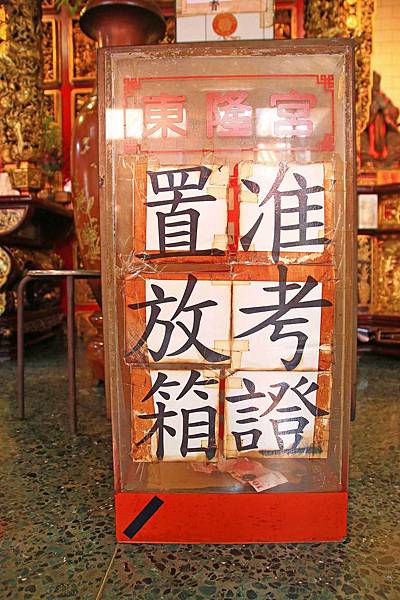 東隆宮
准考證
置放箱